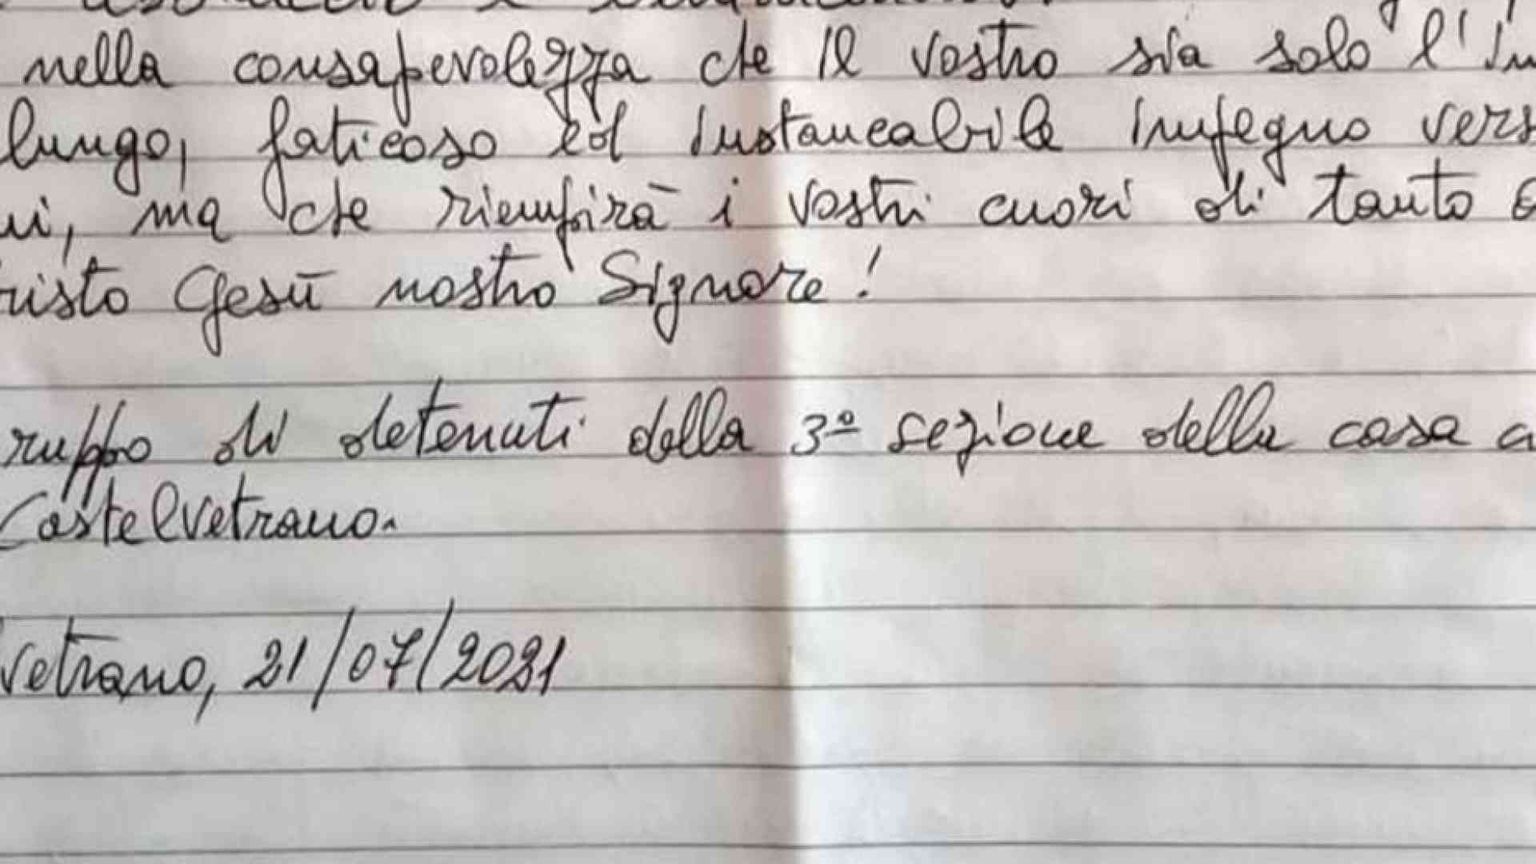 nella consapevolezza che il vostro sia solo l'in
lungo, faticoso ed instancabile impegno vers
ui, ma che riempirà i vostri cuori di tanto
risto Gesù nostro Signore!
ruppo di detenuti della 3ª sezione della casa c
Castelvetrano.
vetrano, 21/07/2021